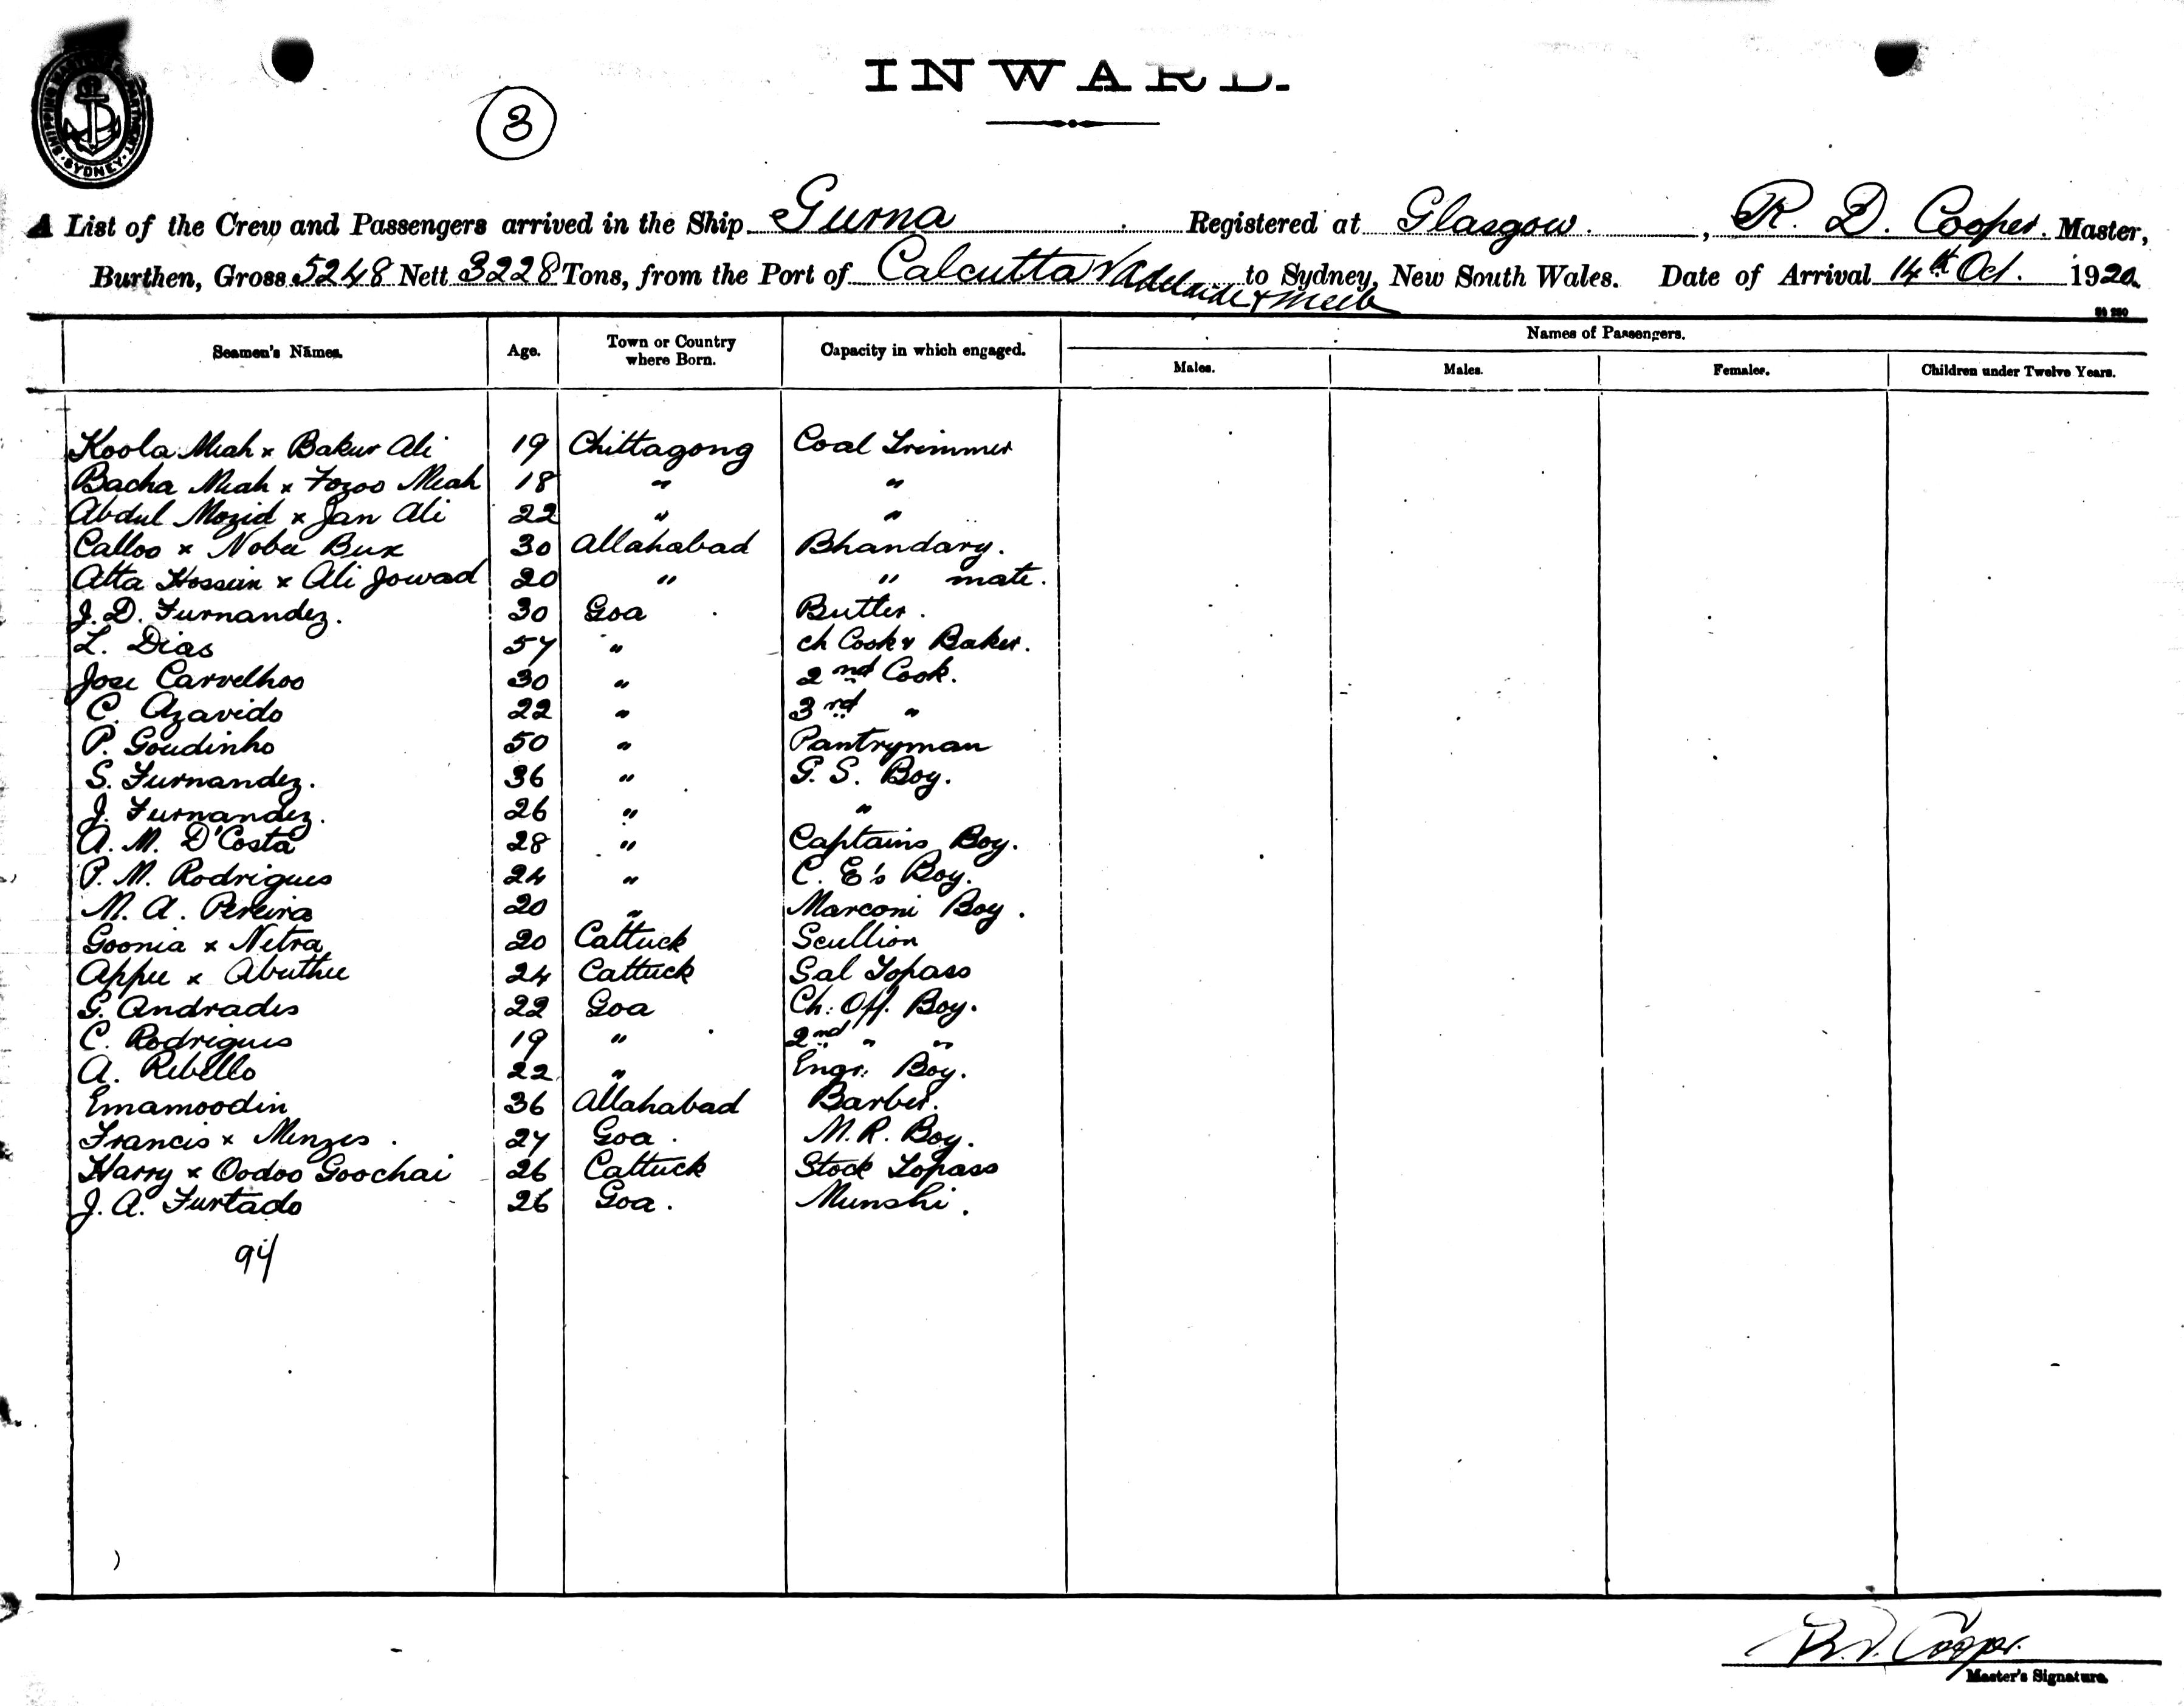 SHIPPING MASTER'S DEPARTMENT. SYDNEY.
INWARD.
3
A List of the Crew and Passengers arrived in the Ship Gurna Registered at Glasgow. , R. D. Cooper. Master,
Burthen, Gross 5248 Nett 3228 Tons, from the Port of Calcutta v Adelaide & Melb to Sydney, New South Wales. Date of Arrival 14th Oct. 1920.
Names of Passengers.
Seamen's Names. Age. Town or Country where Born. Capacity in which engaged. Males. Males. Females. Children under Twelve Years.
Koola Meah x Bakur Ali 19 Chittagong Coal Trimmer
Bacha Meah x Fozoo Meah 18 " "
Abdul Mozid x Jan Ali 22 " "
Calloo x Nobee Bux 30 Allahabad Bhandary.
Atta Hossein x Ali Jowad 20 " " mate.
J. D. Furnandez. 30 Goa Butler.
L. Dias 57 " ch Cook & Baker.
Jose Carvelhoo 30 " 2nd Cook.
C. Azavido 22 " 3rd "
P. Goudinho 50 " Pantryman
S. Furnandez. 36 " G. S. Boy.
J. Furnandez. 26 " "
A. M. D'Costa 28 " Captains Boy.
P. M. Rodrigues 24 " C. E's Boy.
M. A. Pereira 20 " Marconi Boy.
Goonia x Netra 20 Cattuck Scullion
Appee x Abuthee 24 Cattuck Sal Topass
G. Andrades 22 Goa Ch. Off. Boy.
C. Rodrigues 19 " 2nd " "
A. Rebello 22 " Engr. Boy.
Emamoodin 36 Allahabad Barber.
Francis x Menzes. 27 Goa. M. R. Boy.
Harry x Oodoo Goochai 26 Cattuck Stock Topass
J. A. Furtado 26 Goa. Munshi.
94
R. D. Cooper.
Master's Signature.